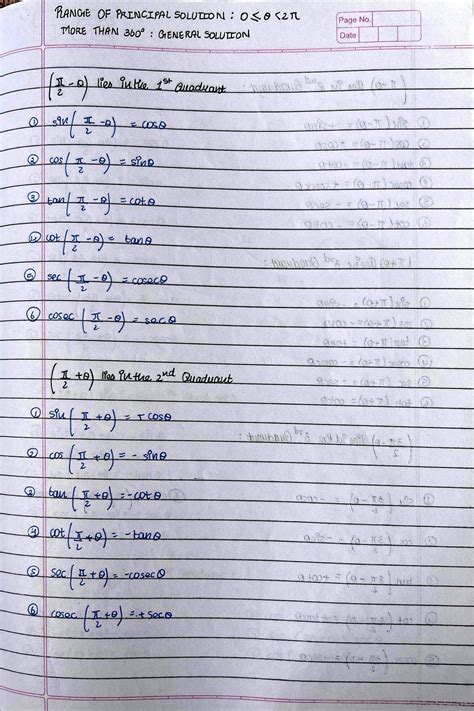 RANGE OF PRINCIPAL SOLUTION : 0 ≤ θ < 2π
MORE THAN 360° : GENERAL SOLUTION
Page No.
Date
(π/2 - θ) lies in the 1st Quadrant
① sin(π/2 - θ) = cosθ
② cos(π/2 - θ) = sinθ
③ tan(π/2 - θ) = cotθ
④ cot(π/2 - θ) = tanθ
⑤ sec(π/2 - θ) = cosecθ
⑥ cosec(π/2 - θ) = secθ
(π/2 + θ) lies in the 2nd Quadrant
① sin(π/2 + θ) = + cosθ
② cos(π/2 + θ) = - sinθ
③ tan(π/2 + θ) = -cotθ
④ cot(π/2 + θ) = -tanθ
⑤ sec(π/2 + θ) = -cosecθ
⑥ cosec(π/2 + θ) = + secθ